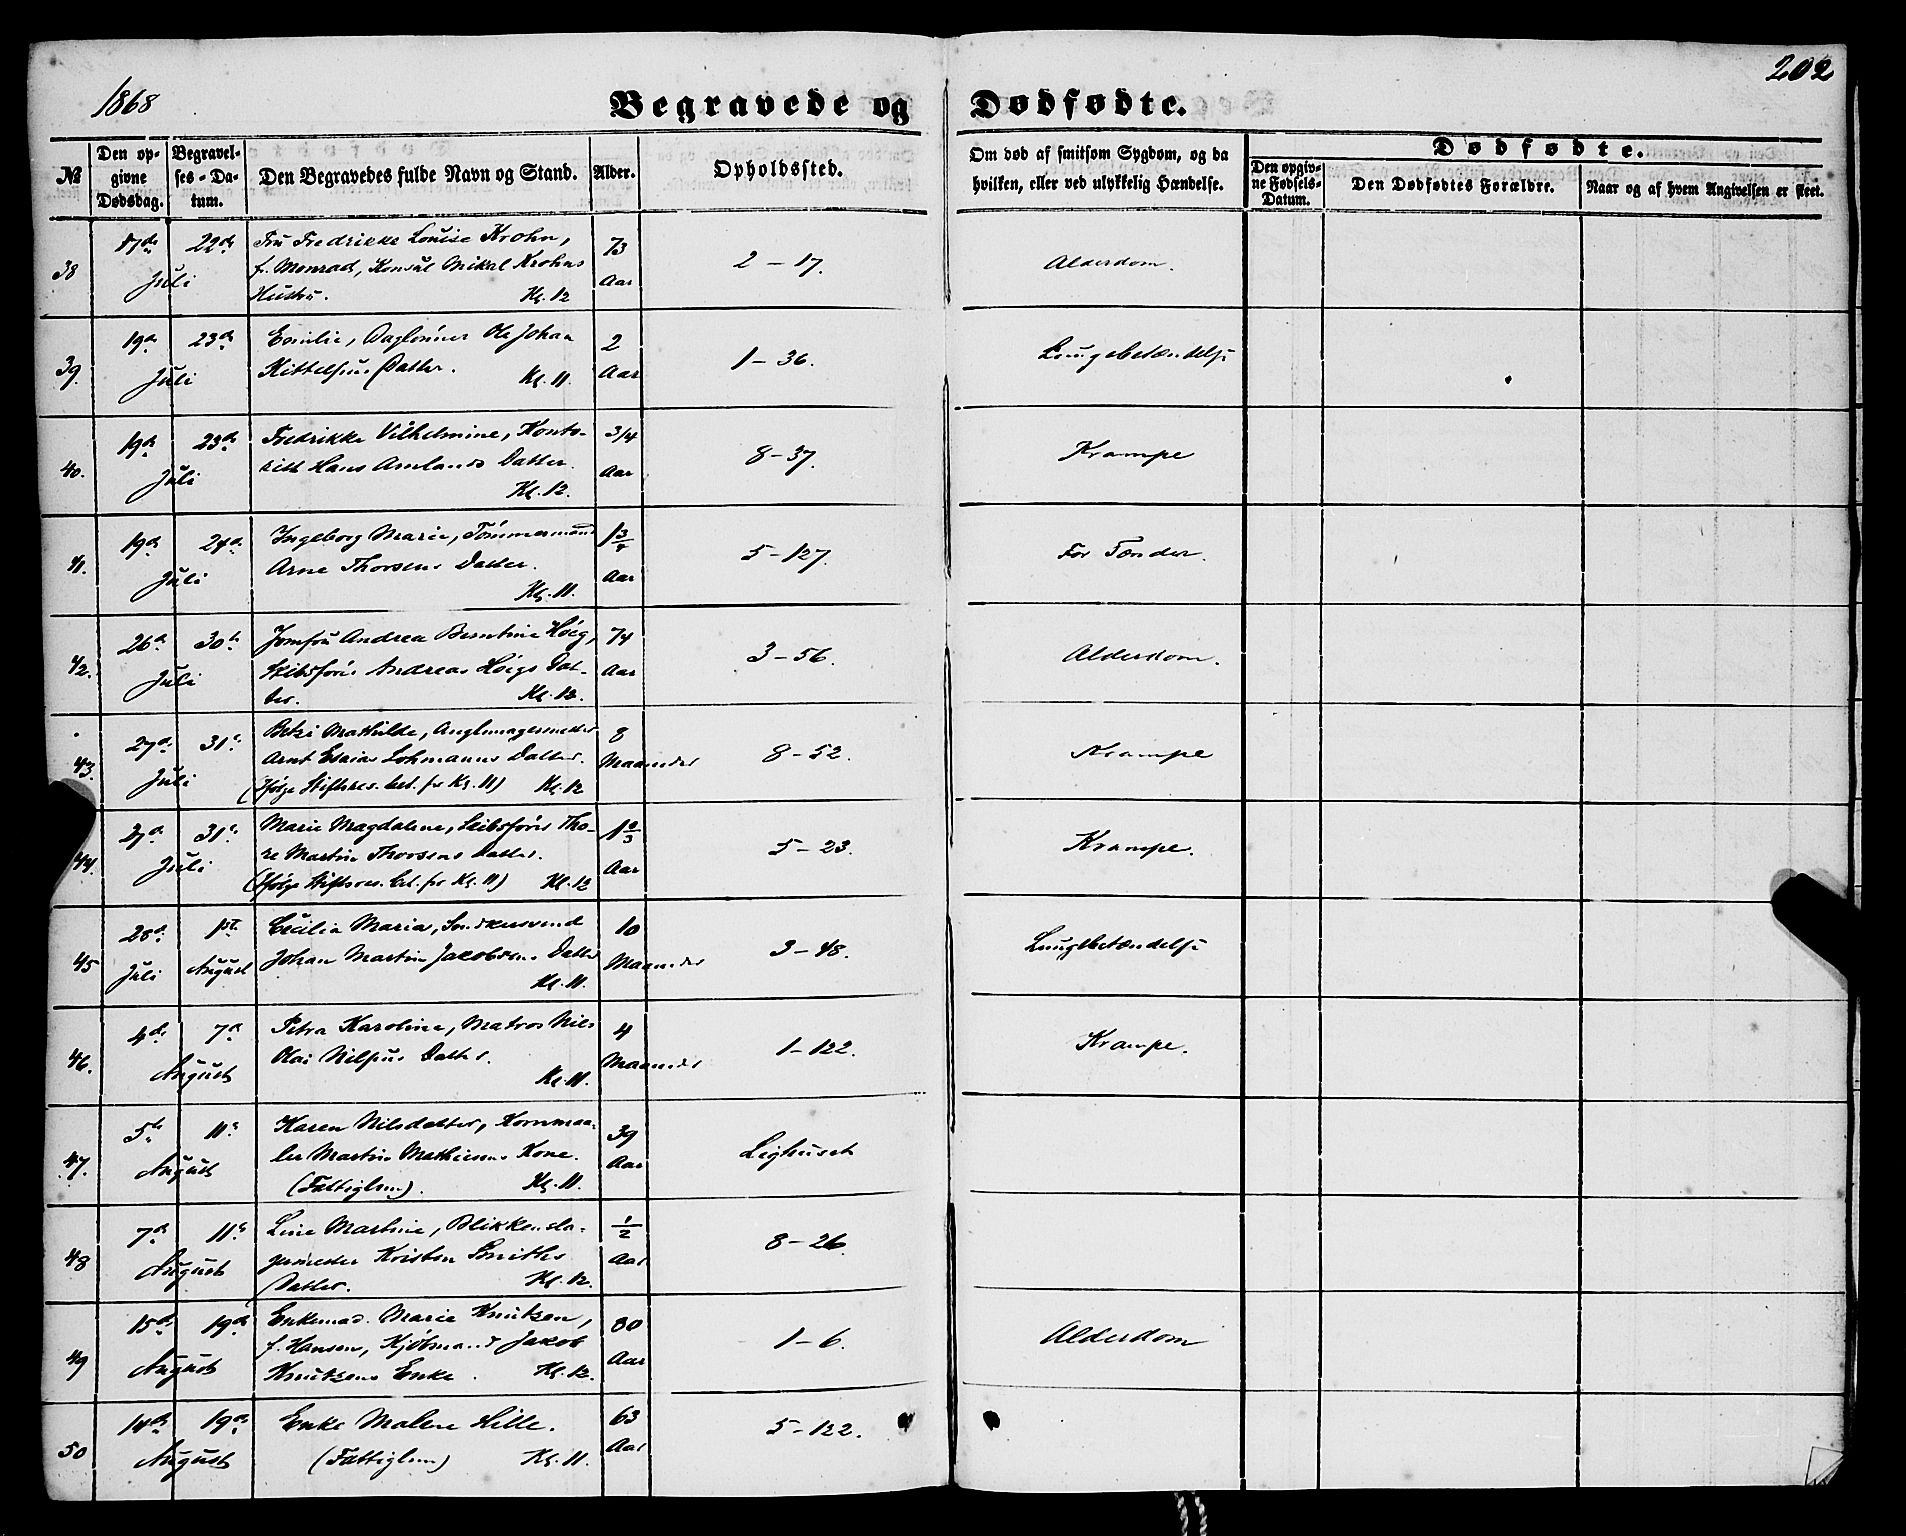 1868
Begravede og Dødfødte.
202
№
Den opgivne Dødsdag.
Begravelses-Datum.
Den Begravedes fulde Navn og Stand.
Alder.
Opholdssted.
Om død af smitsom Sygdom, og da hvilken, eller ved ulykkelig Hændelse.
Dødfødte.
Den opgivne Fødsels-Datum.
Den Dødfødtes Forældre.
Naar og af hvem Angivelsen er skeet.
38 17de 22de Juli
Fru Fredrikke Louise Krohn,
f. Monrad, Konsul Mikal Krohns
Hustru. Kl. 12
73 Aar
2 - 17.
Alderdom.
39. 19de 23de Juli
Emilie, Daglönner Ole Johan
Kittelsens Datter. Kl. 11.
2 Aar
1 - 36.
Lungebetændelse
40. 19de 23de Juli
Fredrikke Vilhelmine, Konto-
rist Hans Amlands Datter.
Kl. 12.
3/4 Aar
8 - 37.
Krampe
41. 19de 24de Juli
Ingeborg Marie, Tömmermand
Arne Thorsens Datter.
Kl. 11.
1 3/4 Aar
5 - 127.
For Tænder.
42. 26de 30te Juli
Jomfru Andrea Berntine Höeg,
Skibsförer Andreas Höegs Dat-
ter. Kl. 12.
74 Aar
3 - 56.
Alderdom.
43. 27de 31te Juli
Mathilde,
Arnt Esaias Lohmanns Datter.
(Ifölge Stiftsres. bet. for Kl. 11) Kl. 12
8 Maaneder
8 - 52.
Krampe
44. 27de 31te Juli
Marie Magdalene, Skibsförer Tho-
re Martin Thorsens Datter.
(Ifölge Stiftsres. bet. for Kl. 11) Kl. 12
Aar
5 - 23.
Krampe.
45 28de Juli 1ste August
Cecilia Maria, Snedkersvend
Johan Martin Jacobsens Datter
Kl. 11.
10 Maaneder
3 - 48.
Lungebetændelse
46. 4de 7de August
Petra Karoline, Matros Nils
Olai Nilsens Datter.
Kl. 11.
4 Maaneder
1 - 122.
Krampe.
47. 5te 11te August
Karen Nilsdatter, Kornmaa-
ler Martin Mathiesens Kone.
(Fattiglem). Kl. 11.
39 Aar
Lighuset
48 7de 11te August
Line Martine, Blikkensla-
germester Kristen Smiths
Datter. Kl. 12.
1/2 Aar
8 - 26.
49 15de 19de August
Enkemad. Marie Knutzen,
f. Hansen, Kjöbmand Jakob
Knutzens Enke. Kl. 12.
80 Aar
1 - 6.
Alderdom
50 14de 19de August
Enke Malene Hille.
(Fattiglem) Kl. 11.
63 Aar
5 - 122.